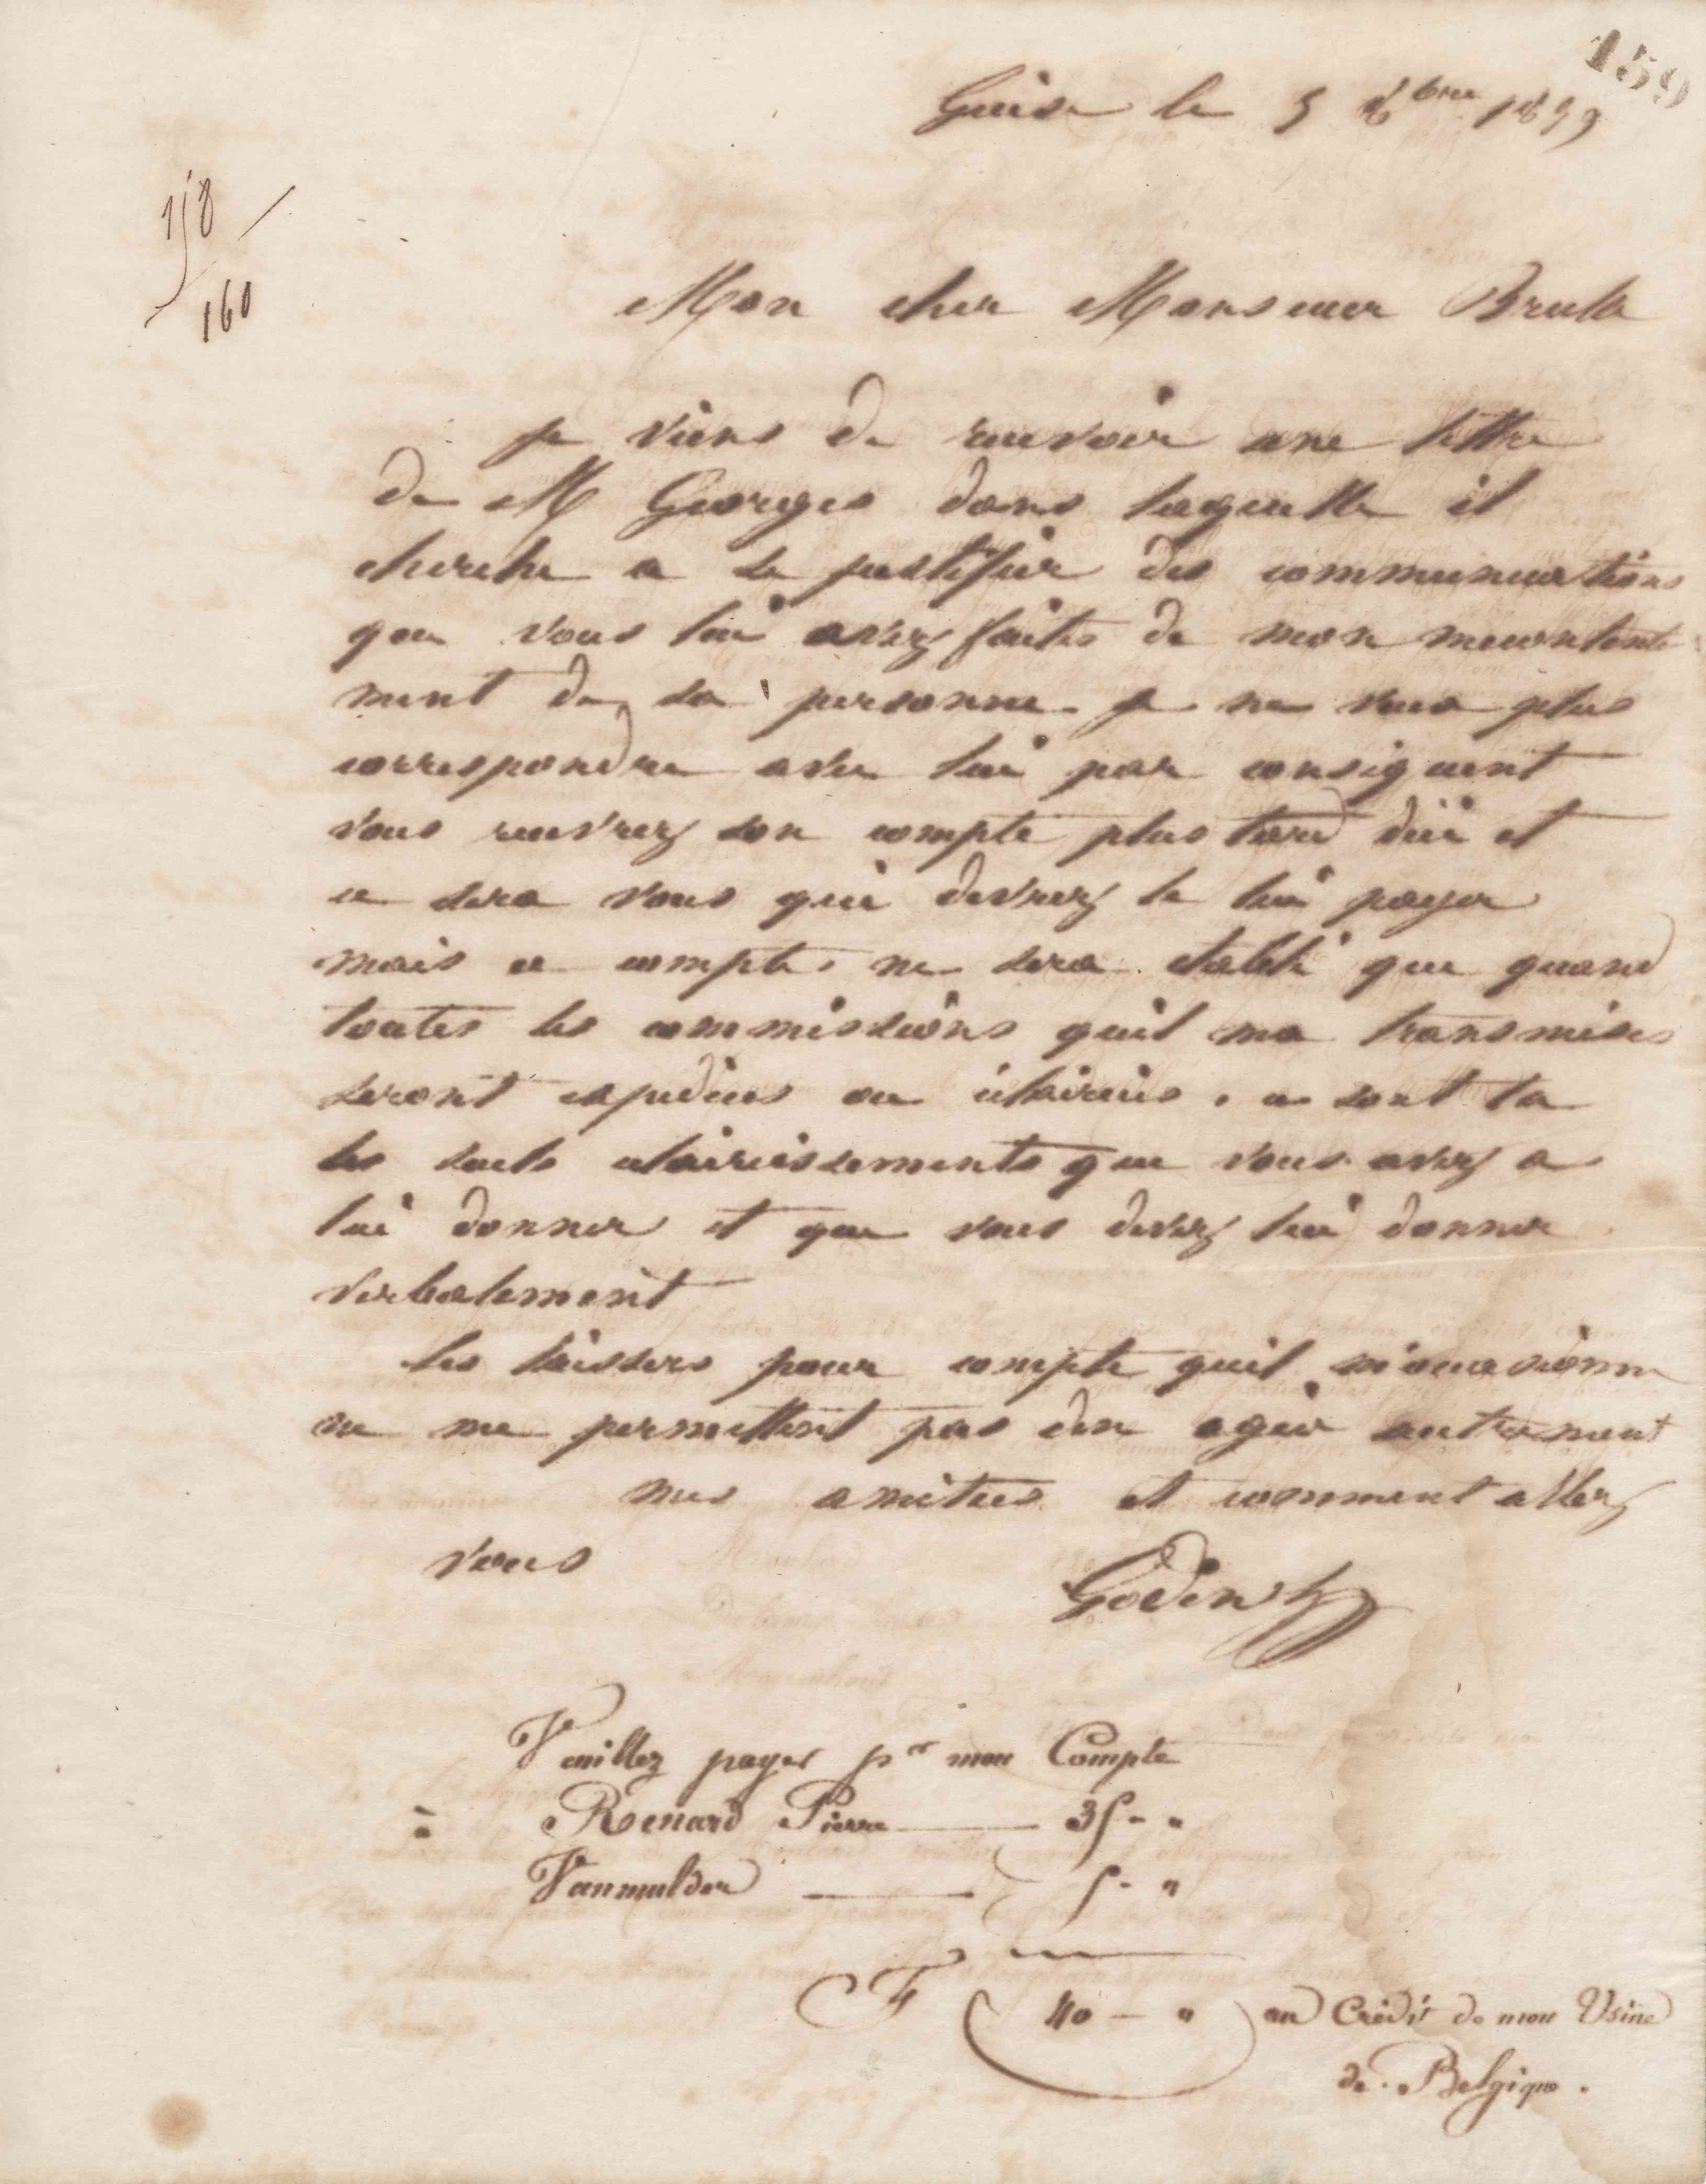 159
Guise le 5 8bre 1859
158
160
Mon cher Monsieur Brullé
je viens de recevoir une lettre
de M Georges dans laquelle il
cherche a se justifier des communications
que vous lui avez faites de mon mecontente
ment de sa personne je ne veux plus
correspondre avec lui par consequent
vous recevrez son compte plus tard
et
ce sera vous qui devrez le lui payer
mais ce compte ne sera etabli que quand
toutes les commissions quil ma transmises
seront expediees ou
ce sont la
les seuls eclaircissements que vous avez a
lui donner et que vous devez lui donner
verbalement
les laissers pour compte quil m'occasionne
ne me permettent pas den agir autrement
mes amities et comment allez
vous
Godin
Veuillez payer pr mon Compte
à Renard Pierre 35 - "
Vanmulder 5 - "
F 40 - " au Crédit de mon Usine
de Belgique.